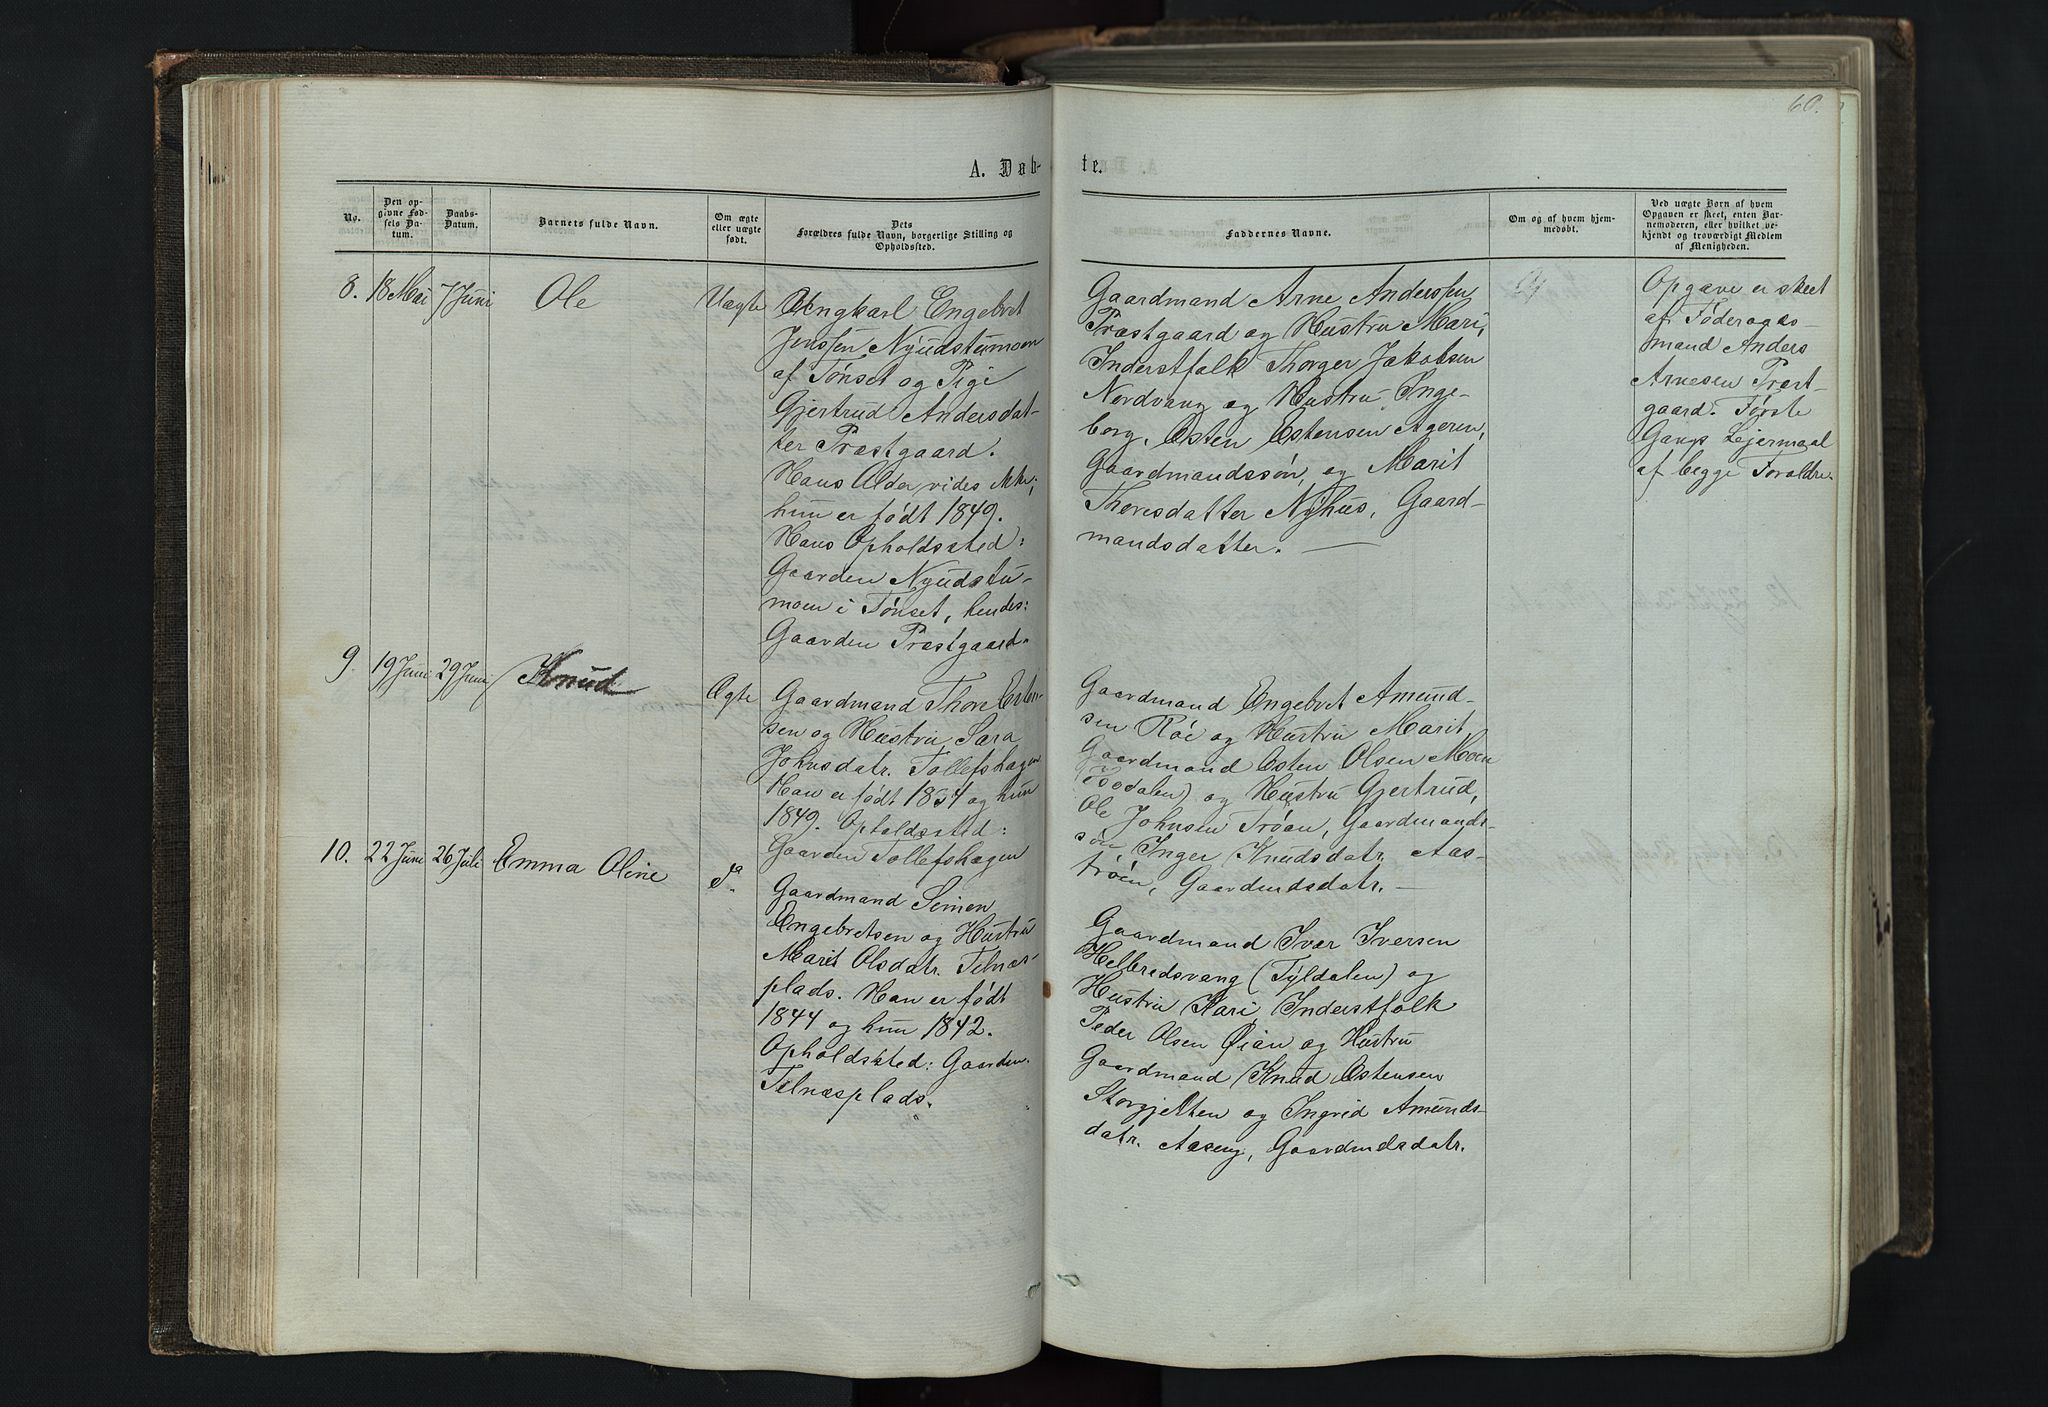 60.
A. Døb-
te.
No.
Den op-
givne Fød-
sels Da-
tum.
Daabs-
Datum.
Barnets fulde Navn.
Om ægte
eller uægte
født.
Dets
Forældres fulde Navn, borgerlige Stilling og
Opholdssted.
Faddernes Navne.
Om og af hvem hjem-
medøbt.
Ved uægte Børn af hvem
Opgaven er skeet, enten Bar-
nemoderen, eller hvilket ve-
kjendt og troværdigt Medlem
af Menigheden.
8.
18 Mai
7 Juni
Ole
Uægte
Ungkarl Engebret
Jenssen Nyudstumoen
af Tønset og Pige
Gjertrud Andersdat-
ter Præstgaard.
Hans Alder vides ikke;
hun er født 1849.
Hans Opholdssted:
Gaarden Nyudstu-
moen i Tønset, hendes:
Gaarden Præstgaard.
Gaardmand Arne Anderssen
Præstgaard og Hustru Mari,
Inderstfolk Thorger Jakobsen
Nordvang og Hustru Inge-
borg, Esten Estensen Ageren,
Gaardmandssøn, og Marit
Thoresdatter Nyhus, Gaard-
mandsdatter.
Opgave er skeet
af Føderaads-
mand Anders
Arnesen Præst-
gaard. Første
Gangs Lejermaal
af begge Forældre.
9.
19 Juni
29 Juni
Knud
Ægte
Gaardmand Thore Esten-
sen og Hustru Sara
Johnsdatr. Tollefshagen
Han er født 1834 og hun
1849. Opholdssted:
Gaarden Tollefshagen
Gaardmand Engebret Amund-
sen Röe og Hustru Marit,
Gaardmand Esten Olsen Moen
og Hustru Gjertrud,
Ole Johnsen Trøan, Gaardmands-
søn Inger Knudsdatr. Aas-
trøen, Gaardmdsdatr.
10.
22 Juni
26 Juli
Emma Oline
do
Gaardmand Simen
Engebretsen og Hustru
Marit Olsdatr. Telnæs-
plads. Han er født
1844 og hun 1842.
Opholdssted: Gaarden
Telnæsplads.
Gaardmand Ivar Iversen
Helbredsvang (Tyldalen) og
Hustru Kari, Inderstfolk
Peder Olsen Øian og Hustru
Gaardmand Knud Estensen
Storgjelten og Ingrid Amunds-
datr. Aaseng, Gaardmdsdatr.